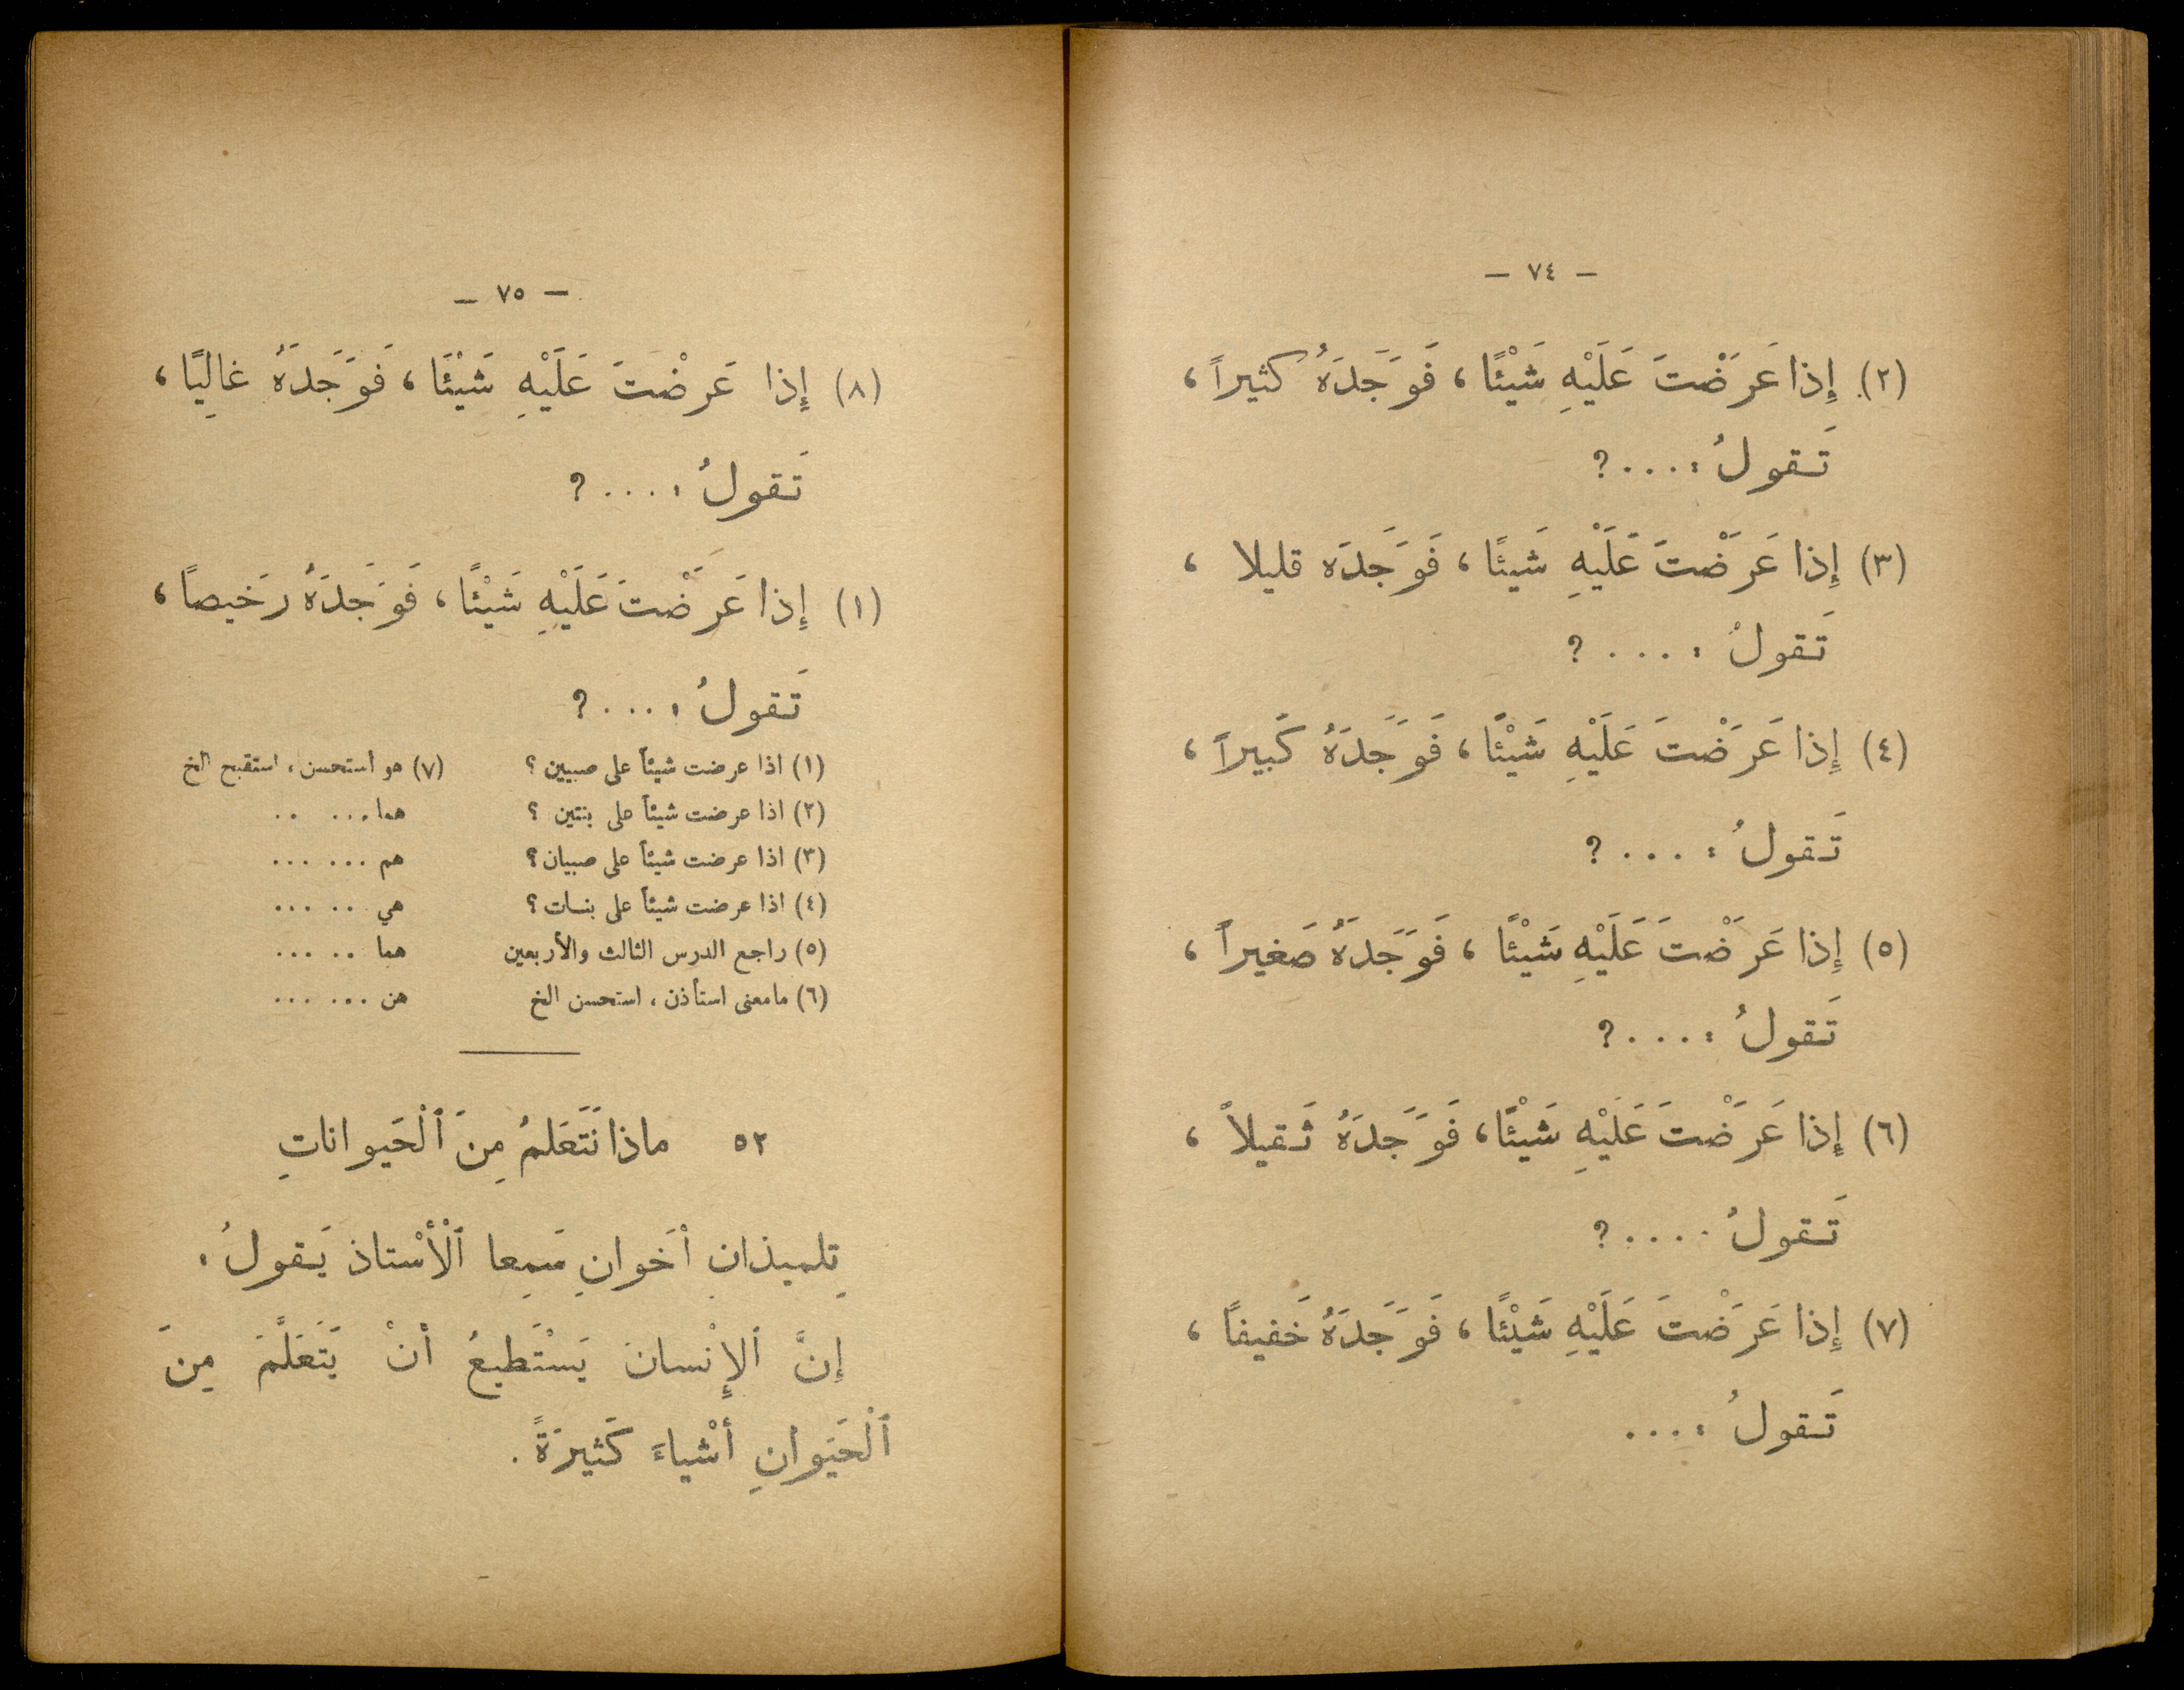 — ٧٤ —
(٢) إِذا عَرَضْتَ عَلَيْهِ شَيْئًا، فَوَجَدَهُ كثيراً،
تَقولُ : . . . ؟
(٣) إِذا عَرَضْتَ عَلَيْهِ شَيئًا، فَوَجَدَه قليلا ،
تَقولُ : . . . ؟
(٤) إِذا عَرَضْتَ عَلَيْهِ شَيْئًا، فَوَجَدَهُ كَبيراً ،
تَقولُ : . . . ؟
(٥) إِذا عَرَضْتَ عَلَيْهِ شَيْئًا ، فَوَجَدَهُ صَغيراً ،
تَقولُ : . . . ؟
(٦) إِذا عَرَضْتَ عَلَيْهِ شَيْئًا، فَوَجَدَهُ ثَقيلاً ،
تَقولُ . . . . ؟
(٧) إِذا عَرَضْتَ عَلَيْهِ شَيْئًا، فَوَجَدَهُ خَفيفاً ،
تَقولُ : . . .
— ٧٥ —
(٨) إِذا عَرضْتَ عَلَيْهِ شَيْئًا ، فَوَجَدَهُ غالِيًا ،
تَقولُ : . . . ؟
(١) إِذا عَرَضْتَ عَلَيْهِ شَيْئًا، فَوَجَدَهُ رَخيصاً ،
تَقولُ : . . . ؟
(١) اذا عرضت شيئاً على صبيين ؟
(٢) اذا عرضت شيئاً على بنتين ؟
(٣) اذا عرضت شيئاً على صبيان؟
(٤) اذا عرضت شيئاً على بنات؟
(٥) راجع الدرس الثالث والأربعين
(٦) مامعنى استأذن ، استحسن الخ
(٧) هو استحسن ، استقبح الخ
هما . . . . .
هم . . . . . .
هي . . . . .
هما . . . . .
هن . . . . . .
٥٢ ماذا نَتَعَلمُ مِنَ ٱلْحَيوانَاتِ
تِلميذانِ أخَوانِ سَمِعا ٱلْأسْتاذ يَقولُ :
إنَّ ٱلإِنْسانَ يَسْتَطيعُ أنْ يَتَعَلَّمَ مِنَ
ٱلْحَيَوانِ أشْياءَ كَثيرَةً .